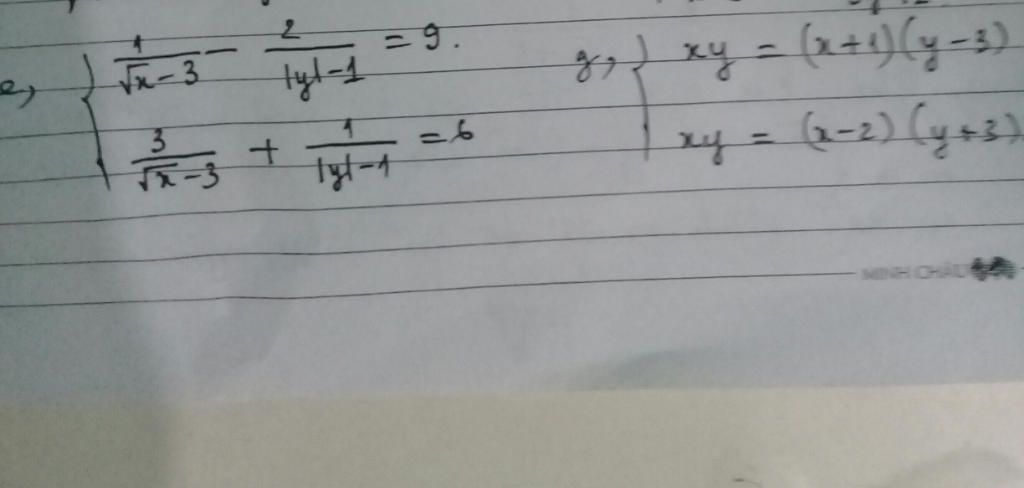 e, { 1/(√x-3) - 2/(|y|-1) = 9.
3/(√x-3) + 1/(|y|-1) = 6
g, { xy = (x+1)(y-3)
xy = (x-2)(y+3)
MINH CHÂU